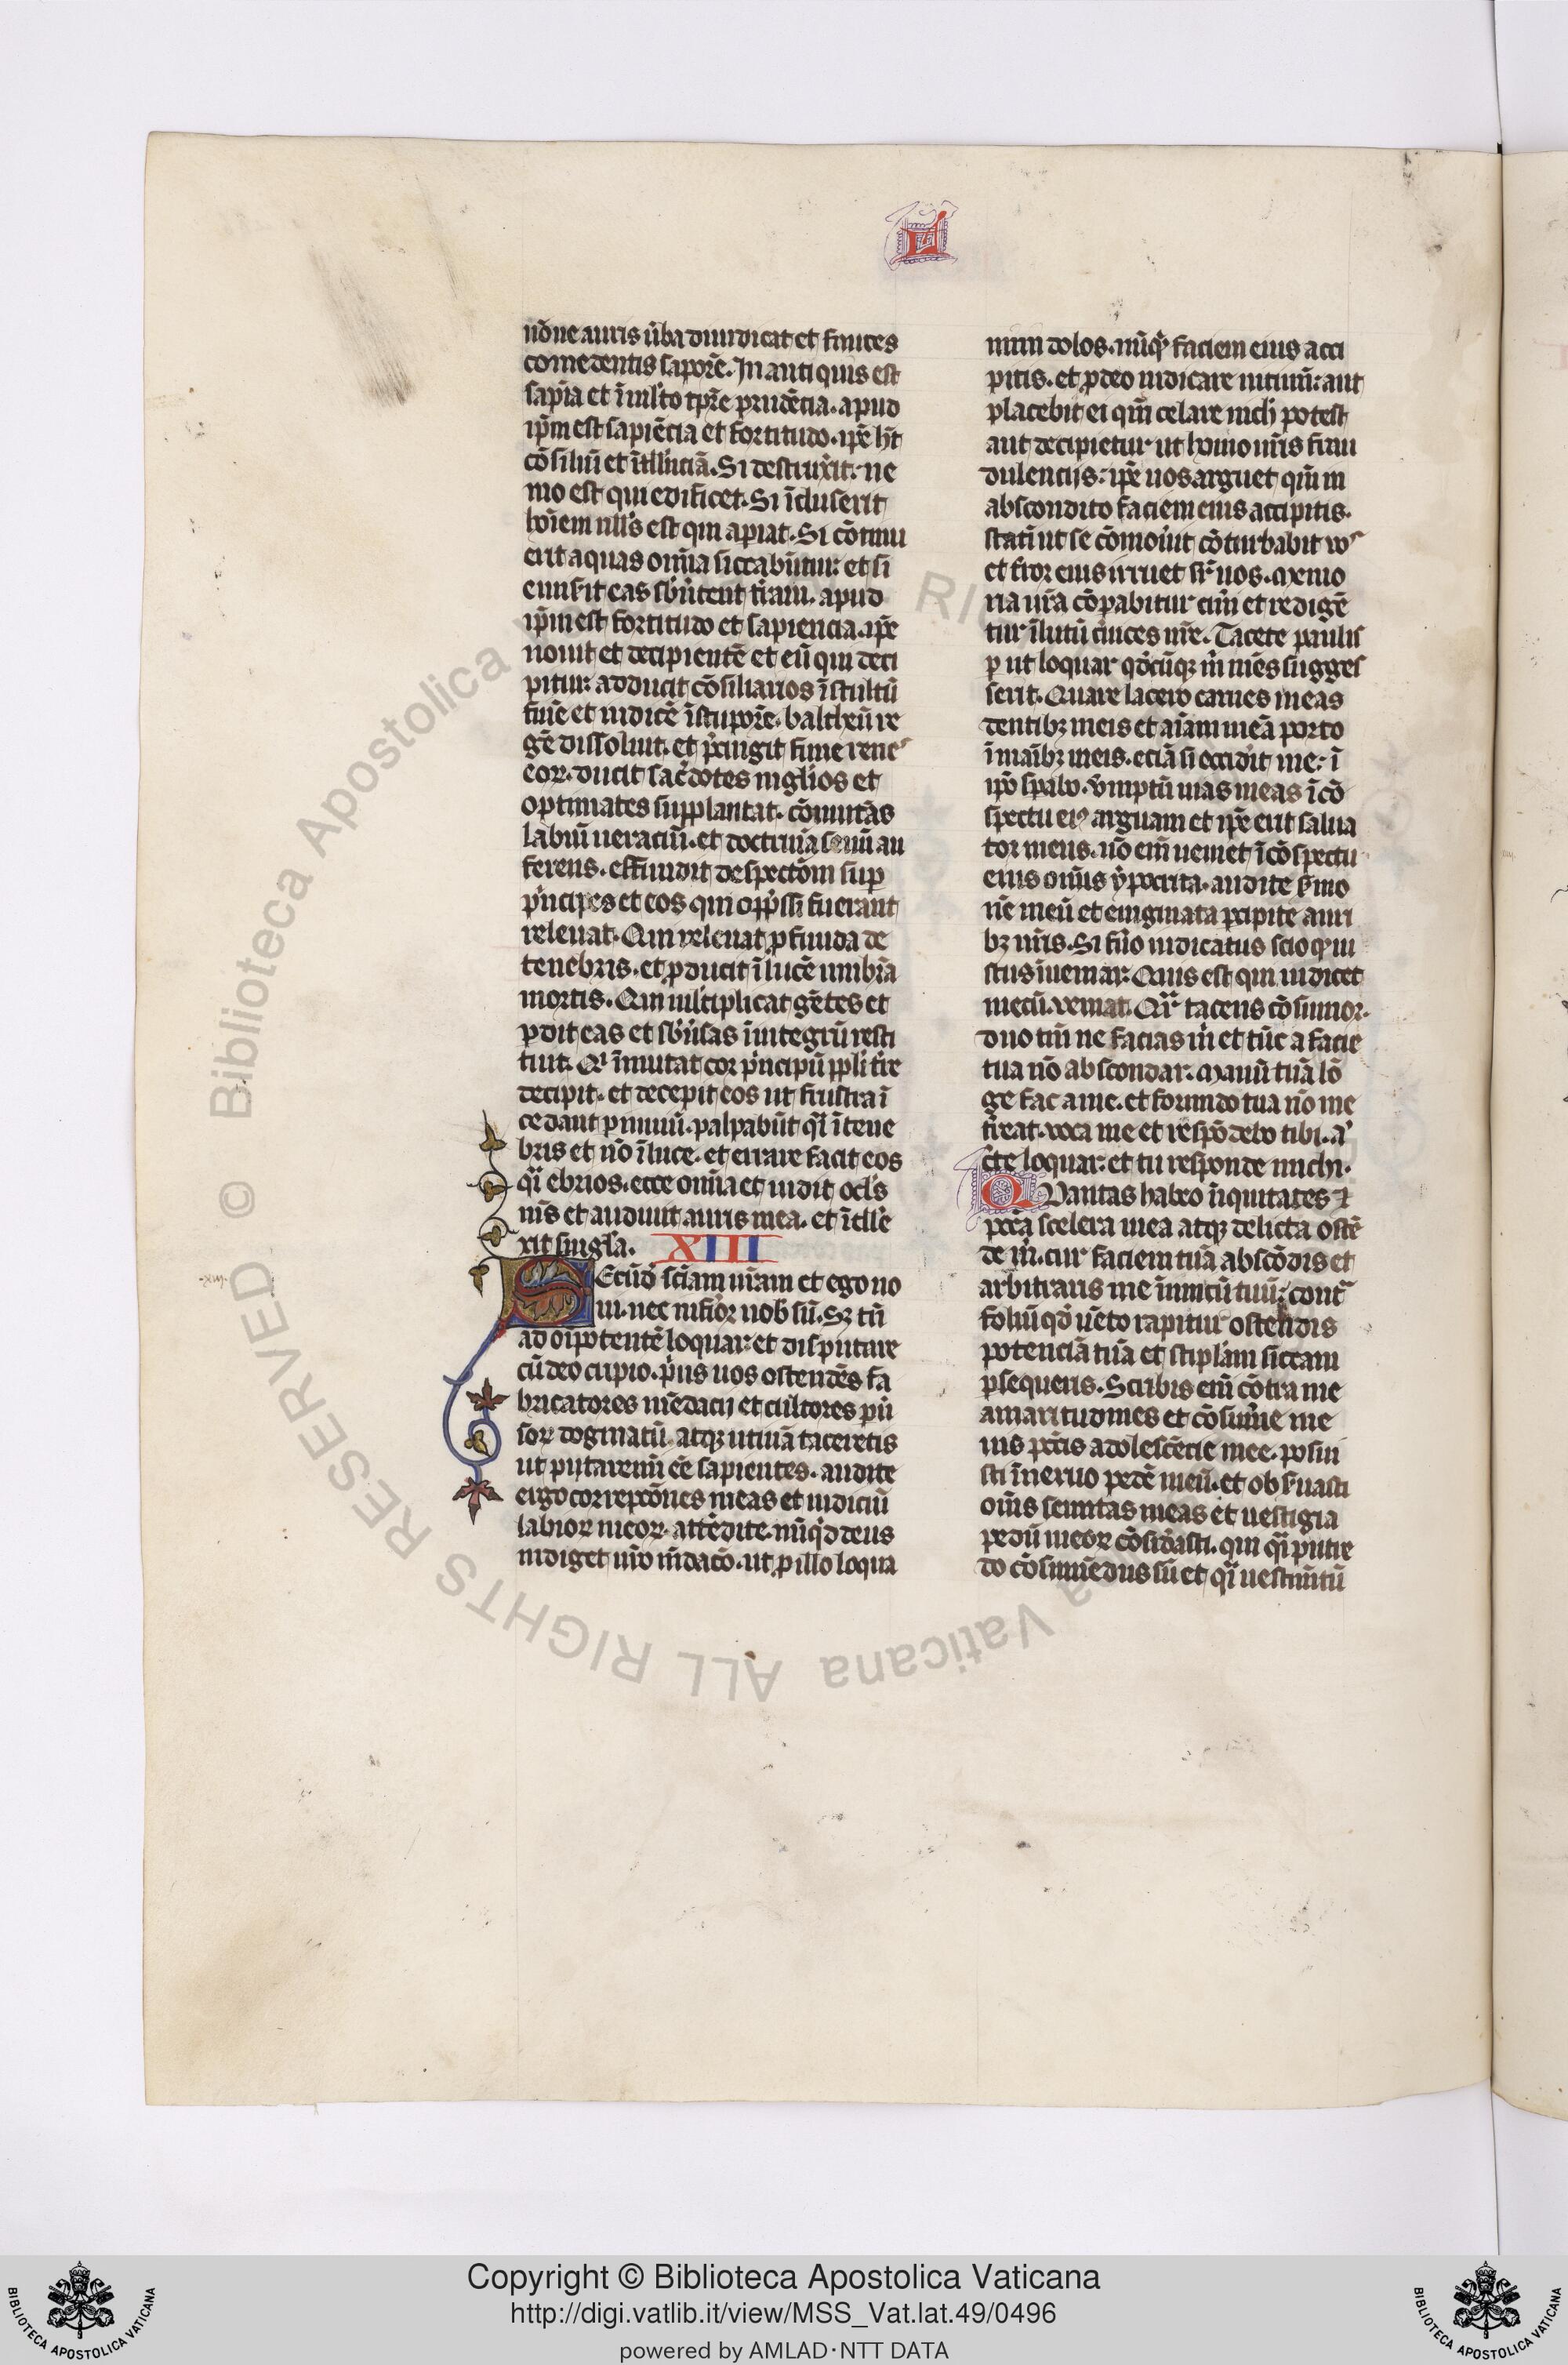 L
nōne auris ūba diiudicat et fauces
comedentis saporē. In antiquis est
sapīa et ī mľto tp̄re prudēcia. apud
ip̄m est sapiēcia et fortitudo. ip̄e h̄t
cōsiliū et ītll'iciā. Si destruxīt: ne
mo est qui edificet. Si īcluserit
hoīem null's est qui apiat. Si cōtinu
erit aquas omīa siccabūtur: et si
emīs̄it eas sb̄ūtent t̄ram. apud
ip̄m est fortitudo et sapiencia. ip̄e
nouit et decipientē et eū qui deci
pitur: adducit cōsiliarios ī stultū
finē et iudicē ī stuporē. baltheū re
gē dissoluit. et p̄cingit fune renes
eoꝝ. ducit sac̄dotes īnglīos et
optimates supplantat. cōmutās
labiū ueraciū. et doctrinā senū au
ferens. effundit despectōm sup
p̄ncipes et eos qui opp̄ssi fuerant
releuat. Qui reuelat ꝓfunda de
tenebris. et ꝓducit ī lucē umbrā
mortis. Qui mľtiplicat gētes et
ꝑdit eas et sb̄ūsas ī integrū resti
tuit. Qi īmutat cor p̄ncipū pp̄li t̄re
decipit. et decepit eos ut frustra ī
cedant ꝑ inuiū. palpabūt q̄i ī tene
bris et nō ī luce. et errare facit eos
q̄i ebrios. ecce omīa et uidit ocl's
m̄s et audiuit auris mea. et ītll'e
xit singľa. XIII
Ecūd̄ sc̄iam ur̄am et ego no
ui. nec īnfīor uob̄ sū. Sꝫ tn̄
ad oīpotentē loquar: et disputare
cū deo cupio. p̄us uos ostendēs fa
bricatores mēdacij et cultores pū
soꝝ dogmatū. atqꝫ utinā taceretis
ut putaremī eē sapientes. audite
ergo correpcōnes meas et iudiciū
labioꝝ meoꝝ. attēdite. nūqd deus
indiget uro mēdacō. ut ꝑ illo loqua
mini dolos. nūq̄d faciem eius acci
pitis. et ꝓ deo iudicare nitimī: aut
placebit ei qm̄ celare nich' potest
aut decipietur ut homo ur̄is frau
dulencijs: ip̄e uos arguet qm̄ in
abscondito faciem eius accipitis.
statī ut se cōmou̅it cōturbabit uos
et t̄ror eius irruet sr̄ uos. Memo
ria ur̄a cōpabitur cin̄i et redigē
tur ī lutū c̄uices ur̄e. Tacete paulis
ꝑ ut loquar qd̄cūqꝫ m̄ mēs sugges
serit. Quare lacero carnes meas
dentibꝫ meis et aīam meā porto
ī maībꝫ meis. eciā si occid̄it me: ī
ip̄o sp̄abo. ūmptn̄ uias meas ī cō
spectu ei9 arguam et ip̄e erit salua
tor meus. nō em̄ ueniet ī cōspectu
eius omīs ypocrita. audite s̄mo
nē meū et enigmata ꝑcipite auri
bꝫ ur̄is. Si fūo iudicatus scio q iu
stus īueniar: Quis est qui iudicet
mecū. ueniat. Qr̄ tacens cōsumor.
duo tm̄ ne facias m̄ et tūc a facie
tua nō abscondar. Manū tuā lō
ge fac a me. et formido tua nō me
t̄reat. voca me et respōdebo tibi. a'
c̄te loquar: et tu responde michi.
Quantas habeo īiquitates et
pc̄cā scelera mea atqꝫ delicta ostē
de m̄. cur faciem tuā abscōdis et
arbitraris me inimicū tuū: cont̄
foliū qd̄ uēto rapitur ostendis
potenciā tuā et stipľam siccam
ꝑsequeris. Scribis em̄ cōtra me
amaritudines et cōsum̄e me
uis pc̄cis adolescēcie mee. posui
sti ī neruo pedē meū. et obs̄uasti
omīs semitas meas et uestigia
pedū meoꝝ cōsid̄asti. qui q̄i putre
do cōsumēdus sū et q̄i uestīm̄tū
Copyright © Biblioteca Apostolica Vaticana
http://digi.vatlib.it/view/MSS_Vat.lat.49/0496
powered by AMLAD·NTT DATA
BIBLIOTECA APOSTOLICA VATICANA
BIBLIOTECA APOSTOLICA VATICANA
© Biblioteca Apostolica Vaticana ALL RIGHTS RESERVED